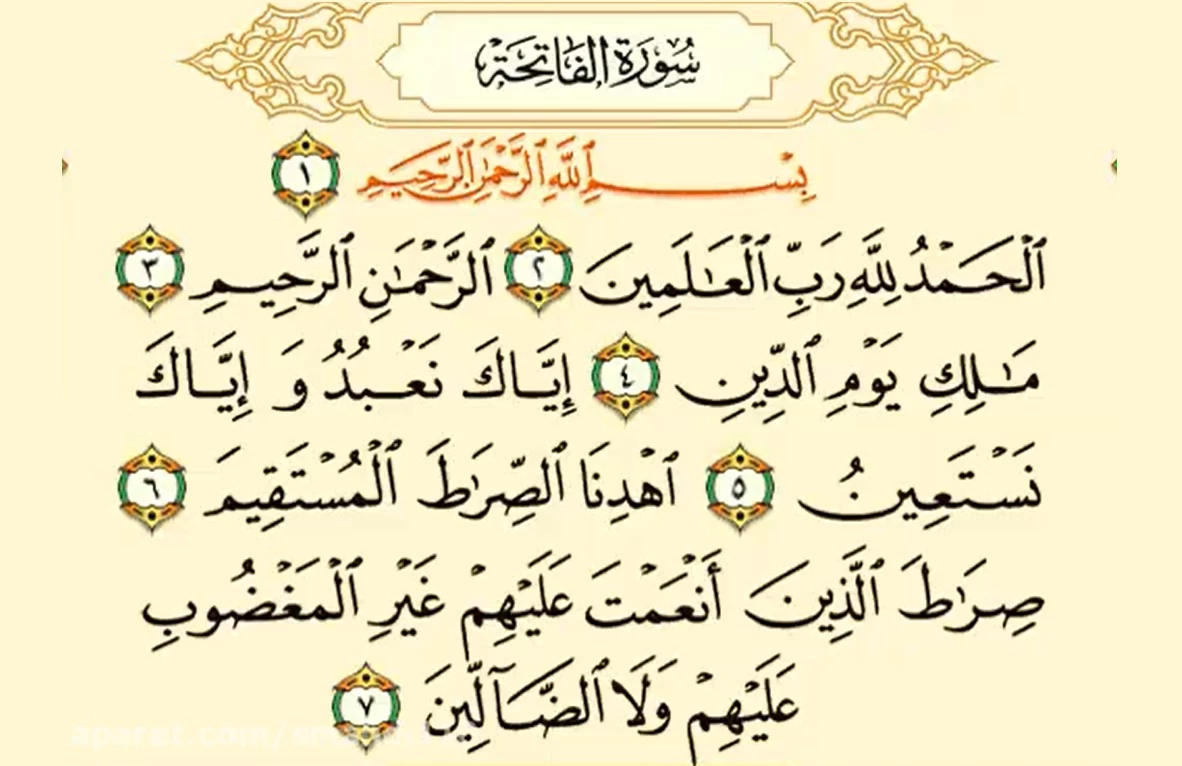 سُورَةُ الفَاتِحَة
بِسْمِ ٱللَّهِ ٱلرَّحْمَٰنِ ٱلرَّحِيمِ ١
ٱلْحَمْدُ لِلَّهِ رَبِّ ٱلْعَـٰلَمِينَ ٢ ٱلرَّحْمَـٰنِ ٱلرَّحِيمِ ٣
مَـٰلِكِ يَوْمِ ٱلدِّينِ ٤ إِيَّاكَ نَعْبُدُ وَ إِيَّاكَ
نَسْتَعِينُ ٥ ٱهْدِنَا ٱلصِّرَٰطَ ٱلْمُسْتَقِيمَ ٦
صِرَٰطَ ٱلَّذِينَ أَنْعَمْتَ عَلَيْهِمْ غَيْرِ ٱلْمَغْضُوبِ
عَلَيْهِمْ وَلَا ٱلضَّآلِّينَ ٧
aparat.com/